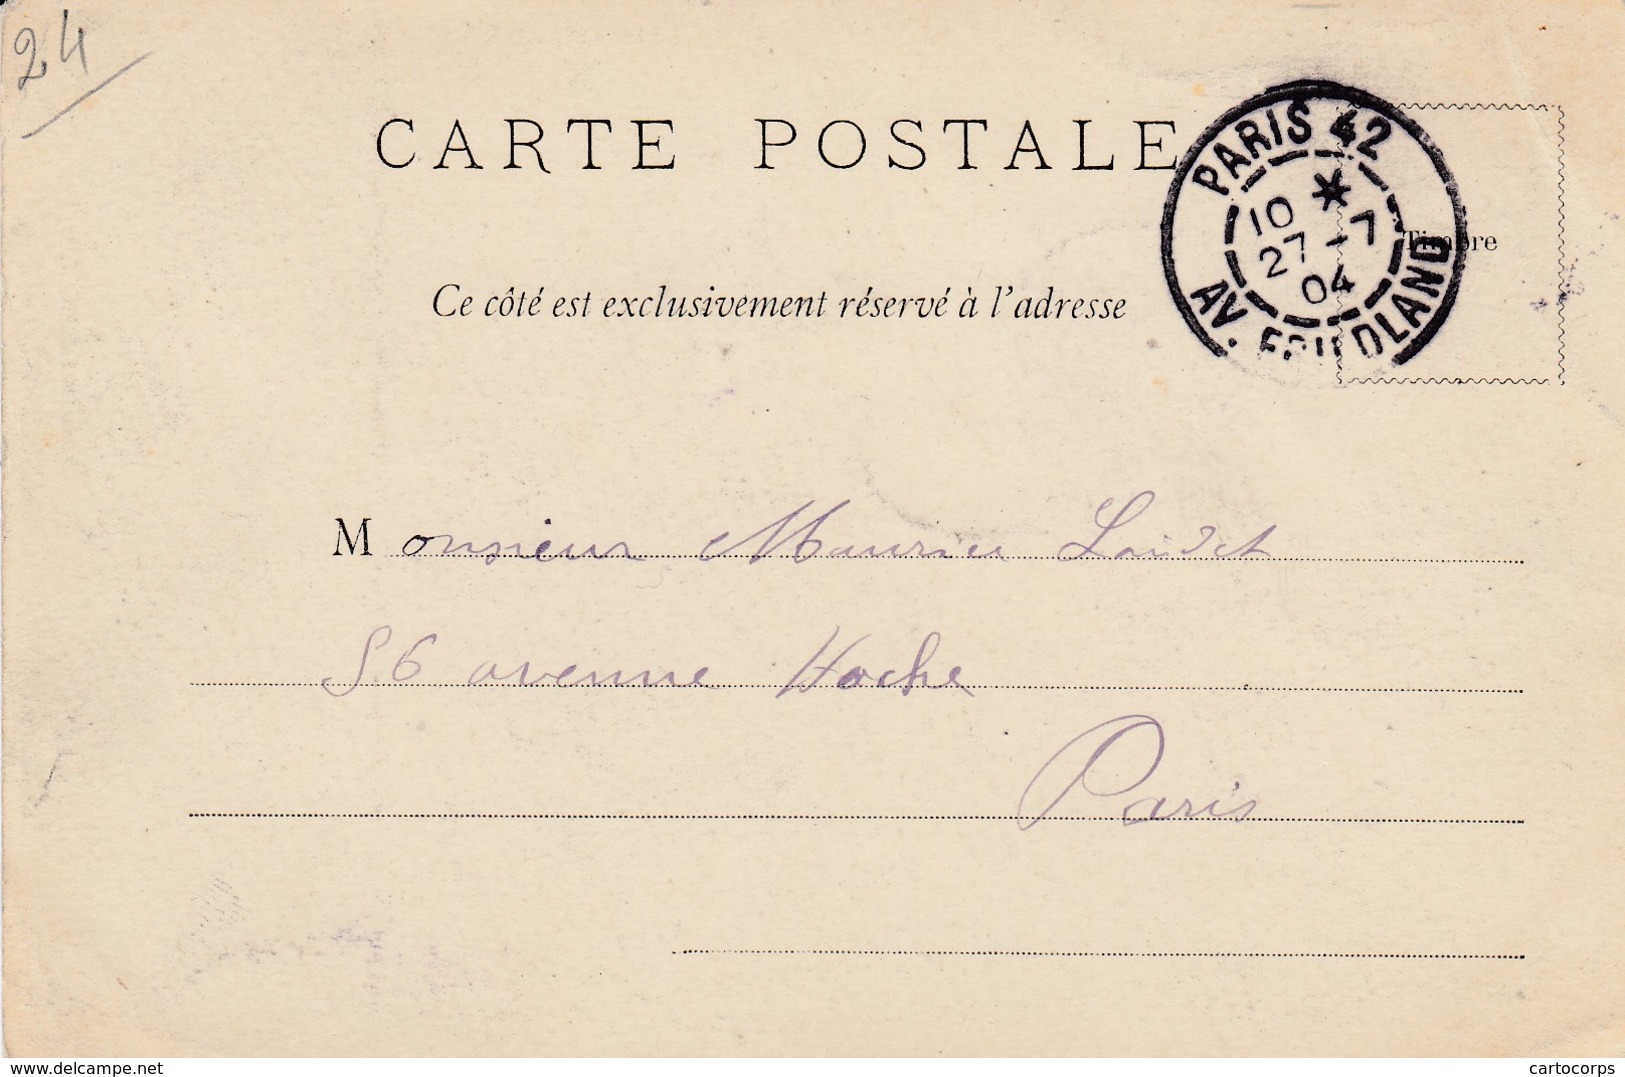 24
CARTE POSTALE
PARIS 42
10 *
27 -7
04
AV. FRIEDLAND
Timbre
Ce côté est exclusivement réservé à l'adresse
Monsieur Maurice
56 avenue Hoche
Paris
www.delcampe.net
cartocorps